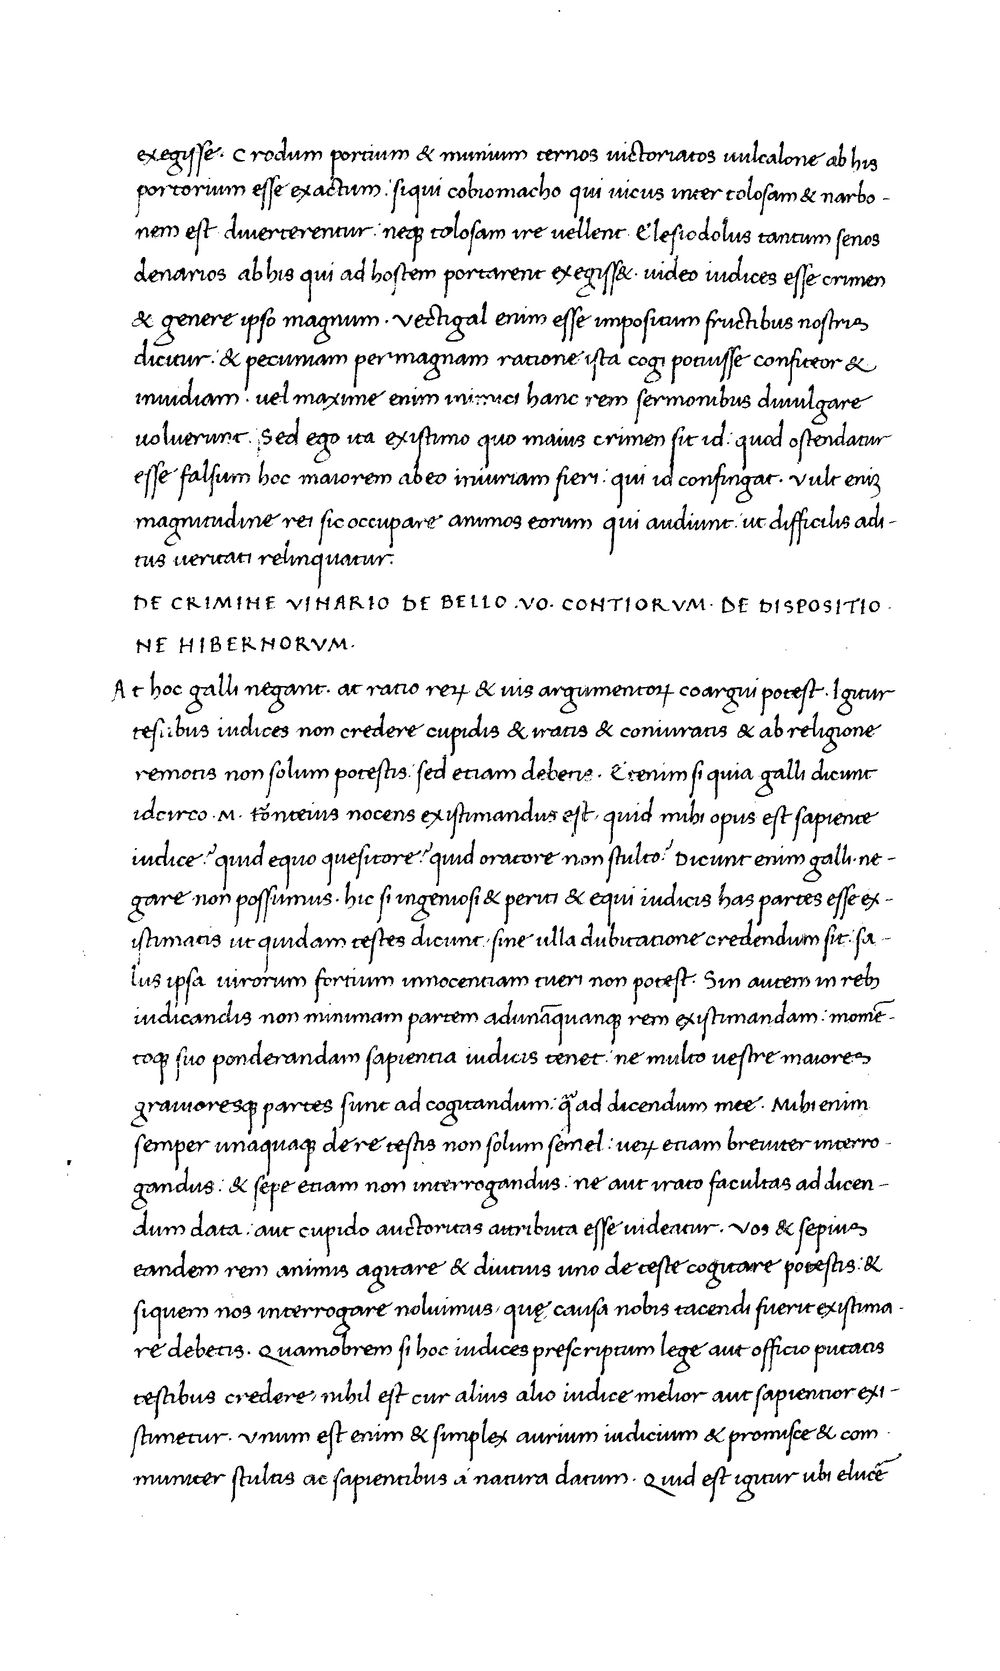 exegisse. Crodum portium & munium ternos uictoriatos uulcalone ab his
portorium esse exactum: siqui cobiomacho qui uicus inter tolosam & narbo-
nem est diuerterentur: neq; tolosam ire uellent. Elesiodolus tantum senos
denarios ab his qui ad hostem portarent exegiss&. uideo iudices esse crimen
& genere ipso magnum. Vectigal enim esse impositum fructibus nostris
dicitur: & pecuniam permagnam ratione ista cogi potuisse confiteor &
inuidiam. uel maxime enim inimici hanc rem sermonibus diuulgare
uoluerunt. Sed ego ita existimo quo maius crimen sit id: quod ostendatur
esse falsum hoc maiorem ab eo iniuriam fieri: qui id confingat. Vult eniȝ
magnitudine rei sic occupare animos eorum qui audiunt: ut difficilis adi-
tus ueritati relinquatur.
DE CRIMINE VINARIO DE BELLO .VO. CONTIORVM. DE DISPOSITIO.
NE HIBERNORVM.
At hoc galli negant. at ratio reꝝ & uis argumentoꝝ coargui potest. Igitur
testibus iudices non credere cupidis & iratis & coniuratis & ab religione
remotis non solum potestis: sed etiam debetis. Etenim si quia galli dicunt
idcirco .M. fōnteius nocens existimandus est, quid mihi opus est sapiente
iudice? quid equo quesitore? quid oratore non stulto? Dicunt enim galli. ne-
gare non possumus. hic si ingeniosi & periti & equi iudicis has partes esse ex-
istimatis ut quidam testes dicunt, sine ulla dubitatione credendum sit. sa-
lus ipsa uirorum fortium innocentiam tueri non potest. Sin autem in reb;
iudicandis non minimam partem adunāquanq; rem existimandam: momē-
toq; suo ponderandam sapientia iudicis tenet: ne multo uestre maiores
grauioresq; partes sunt ad cogitandum: q̄ ad dicendum mee. Mihi enim
semper unaquaq; de re testis non solum semel: ueꝝ etiam breuiter interro-
gandus: & sepe etiam non interrogandus: ne aut irato facultas ad dicen-
dum data: aut cupido auctoritas attributa esse uideatur. Vos & sepius
eandem rem animis agitare & diutius uno de teste cogitare potestis: &
siquem nos interrogare noluimus, quę causa nobis tacendi fuerit existima-
re debetis. Quamobrem si hoc iudices prescriptum lege aut officio putatis
testibus credere, nihil est cur alius alio iudice melior aut sapientior exi-
stimetur. Vnum est enim & simplex aurium iudicium & promisce & com
muniter stultis ac sapientibus a natura datum. Quid est igitur ubi elucē